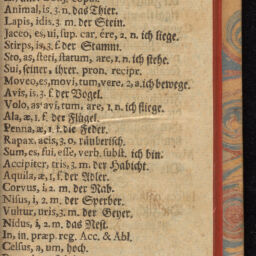 Animal, is. 3. n. das Thier.
Lapis, idis. 3. m. der Stein.
Jaceo, es, ui, sup. car. ére, 2. n. ich liege.
Stirps, is, 3. f. der Stamm.
Sto, as, steti, statum, are, 1. n. ich stehe.
Sui, seiner, ihrer. pron. recipr.
Moveo, es, movi, tum, vere, 2, a. ich bewege.
Avis, is. 3. f. der Vogel.
Volo, as, avi, tum, are, 1, n. ich fliege.
Ala, æ, 1. f. der Flügel.
Penna, æ, 1. f. die Feder.
Rapax, acis, 3. o. räuberisch.
Sum, es, fui, esse, verb. subst. ich bin.
Accipiter, tris, 3. m. der Habicht.
Aquila, æ, 1, f. der Adler.
Corvus, i, 2. m. der Rab.
Nisus, i, 2. m. der Sperber.
Vultur, uris, 3. m. der Geyer.
Nidus, i, 2. m. das Nest.
In, in. præp. reg. Acc. & Abl.
Celsus, a, um, hoch.